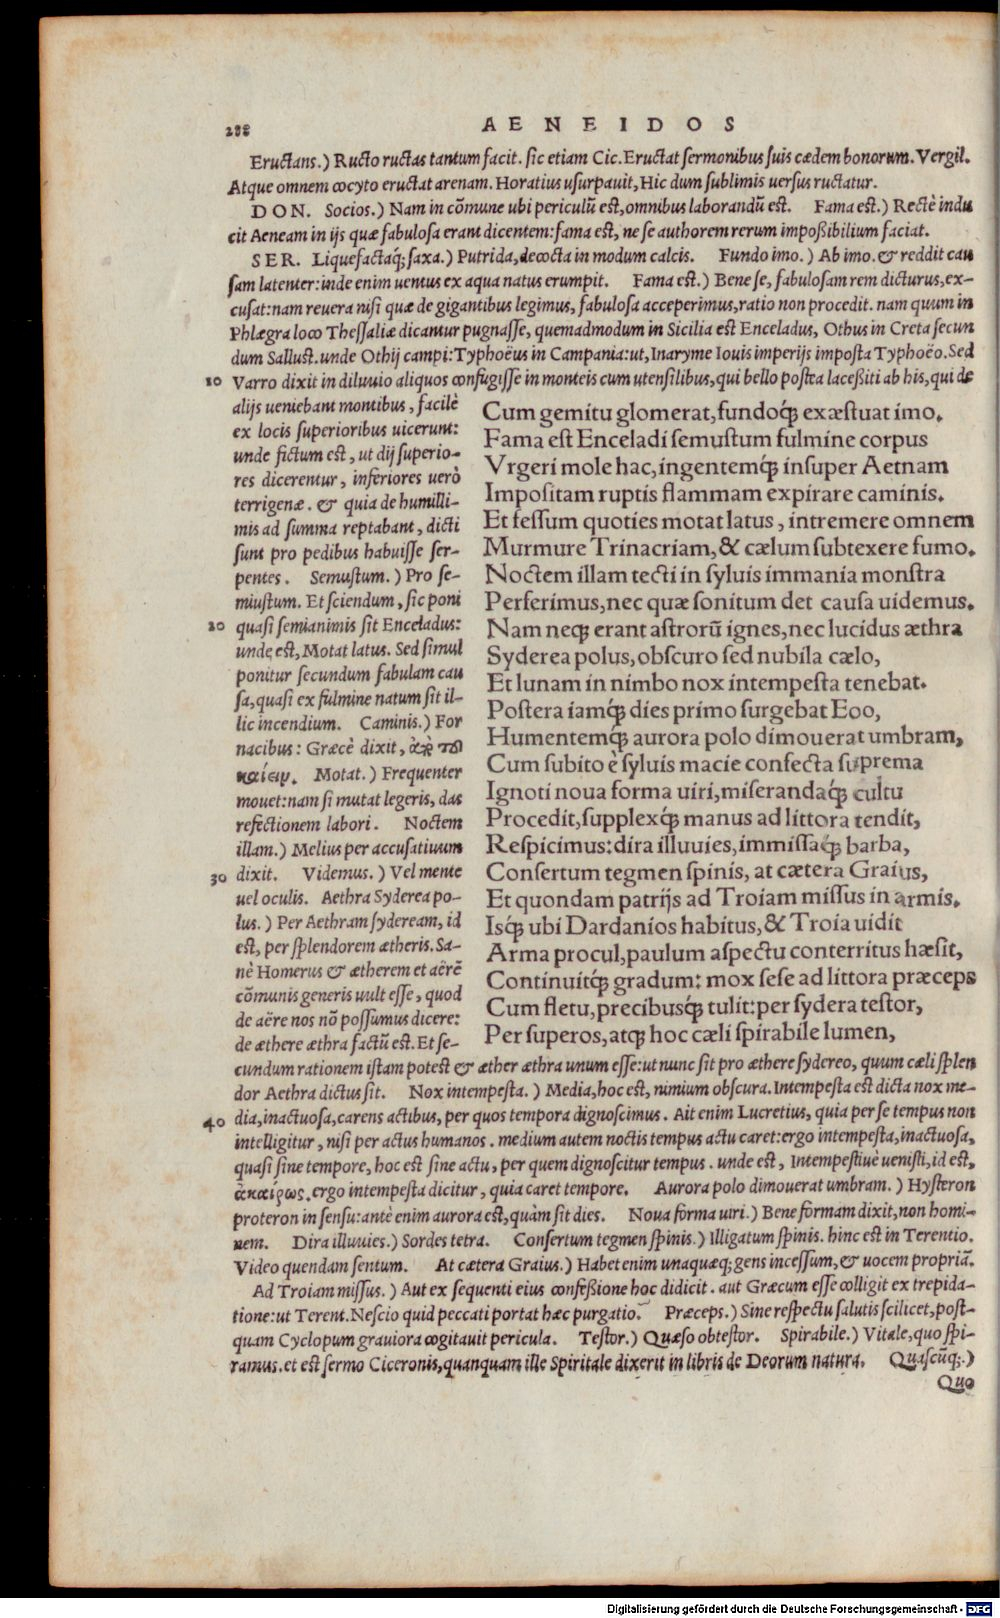 288
AENEIDOS
Eructans.) Ructo ructas tantum facit. sic etiam Cic. Eructat sermonibus suis cædem bonorum. Vergil.
Atque omnem cocyto eructat arenam. Horatius usurpauit, Hic dum sublimis uersus ructatur.
DON. Socios.) Nam in cõmune ubi periculũ est, omnibus laborandũ est. Fama est.) Rectè indu
cit Aeneam in ijs quæ fabulosa erant dicentem: fama est, ne se authorem rerum impoßibilium faciat.
SER. Liquefactaq́; saxa.) Putrida, decocta in modum calcis. Fundo imo.) Ab imo. & reddit cau
sam latenter: inde enim uentus ex aqua natus erumpit. Fama est.) Bene se, fabulosam rem dicturus, ex-
cusat: nam reuera nisi quæ de gigantibus legimus, fabulosa acceperimus, ratio non procedit. nam quum in
Phlægra loco Thessaliæ dicantur pugnasse, quemadmodum in Sicilia est Enceladus, Othus in Creta secun
dum Sallust. unde Othij campi: Typhoëus in Campania: ut, Inaryme Iouis imperijs imposta Typhoëo. Sed
10 Varro dixit in diluuio aliquos confugisse in monteis cum utensilibus, qui bello postea laceßiti ab his, qui de
alijs ueniebant montibus, facilè
ex locis superioribus uicerunt:
unde fictum est, ut dij superio-
res dicerentur, inferiores uerò
terrigenæ. & quia de humilli-
mis ad summa reptabant, dicti
sunt pro pedibus habuisse ser-
pentes. Semustum.) Pro se-
miustum. Et sciendum, sic poni
20 quasi semianimis sit Enceladus:
unde est, Motat latus. Sed simul
ponitur secundum fabulam cau
sa, quasi ex fulmine natum sit il-
lic incendium. Caminis.) For
nacibus: Græcè dixit, ἀπὸ τοῦ
καίειν. Motat.) Frequenter
mouet: nam si mutat legeris, das
refectionem labori. Noctem
illam.) Melius per accusatiuum
30 dixit. Videmus.) Vel mente
uel oculis. Aethra Syderea po-
lus.) Per Aethram sydeream, id
est, per splendorem ætheris. Sa-
nè Homerus & ætherem et aërē
cõmunis generis uult esse, quod
de aëre nos nõ possumus dicere:
de æthere æthra factũ est. Et se-
Cum gemitu glomerat, fundoq́; exæstuat imo.
Fama est Enceladi semustum fulmine corpus
Vrgeri mole hac, ingentemq́; insuper Aetnam
Impositam ruptis flammam expirare caminis.
Et fessum quoties motat latus, intremere omnem
Murmure Trinacriam, & cælum subtexere fumo.
Noctem illam tecti in syluis immania monstra
Perferimus, nec quæ sonitum det causa uidemus.
Nam neq; erant astrorũ ignes, nec lucidus æthra
Syderea polus, obscuro sed nubila cælo,
Et lunam in nimbo nox intempesta tenebat.
Postera iamq́; dies primo surgebat Eoo,
Humentemq́; aurora polo dimouerat umbram,
Cum subito è syluis macie confecta suprema
Ignoti noua forma uiri, miserandaq́; cultu
Procedit, supplexq́; manus ad littora tendit,
Respicimus: dira illuuies, immissaq́; barba,
Consertum tegmen spinis, at cætera Graius,
Et quondam patrijs ad Troiam missus in armis.
Isq́; ubi Dardanios habitus, & Troia uidit
Arma procul, paulum aspectu conterritus hæsit,
Continuitq́; gradum: mox sese ad littora præceps
Cum fletu, precibusq́; tulit: per sydera testor,
Per superos, atq; hoc cæli spirabile lumen,
cundum rationem istam potest & æther æthra unum esse: ut nunc sit pro æthere sydereo, quum cæli splen
dor Aethra dictus sit. Nox intempesta.) Media, hoc est, nimium obscura. Intempesta est dicta nox me-
40 dia, inactuosa, carens actibus, per quos tempora dignoscimus. Ait enim Lucretius, quia per se tempus non
intelligitur, nisi per actus humanos. medium autem noctis tempus actu caret: ergo intempesta, inactuosa,
quasi sine tempore, hoc est sine actu, per quem dignoscitur tempus. unde est, Intempestiuè uenisti, id est,
ἀκαίρως. ergo intempesta dicitur, quia caret tempore. Aurora polo dimouerat umbram.) Hysteron
proteron in sensu: antè enim aurora est, quàm sit dies. Noua forma uiri.) Bene formam dixit, non homi-
nem. Dira illuuies.) Sordes tetra. Consertum tegmen spinis.) Illigatum spinis. hinc est in Terentio.
Video quendam sentum. At cætera Graius.) Habet enim unaquæq; gens incessum, & uocem propriã.
Ad Troiam missus.) Aut ex sequenti eius confeßione hoc didicit. aut Græcum esse colligit ex trepida-
tione: ut Terent. Nescio quid peccati portat hæc purgatio. Præceps.) Sine respectu salutis scilicet, post-
quam Cyclopum grauiora cogitauit pericula. Testor.) Quæso obtestor. Spirabile.) Vitale, quo spi-
ramus. et est sermo Ciceronis, quanquam ille Spiritale dixerit in libris de Deorum natura. Quascũq;.)
Quo
Digitalisierung gefördert durch die Deutsche Forschungsgemeinschaft - DFG